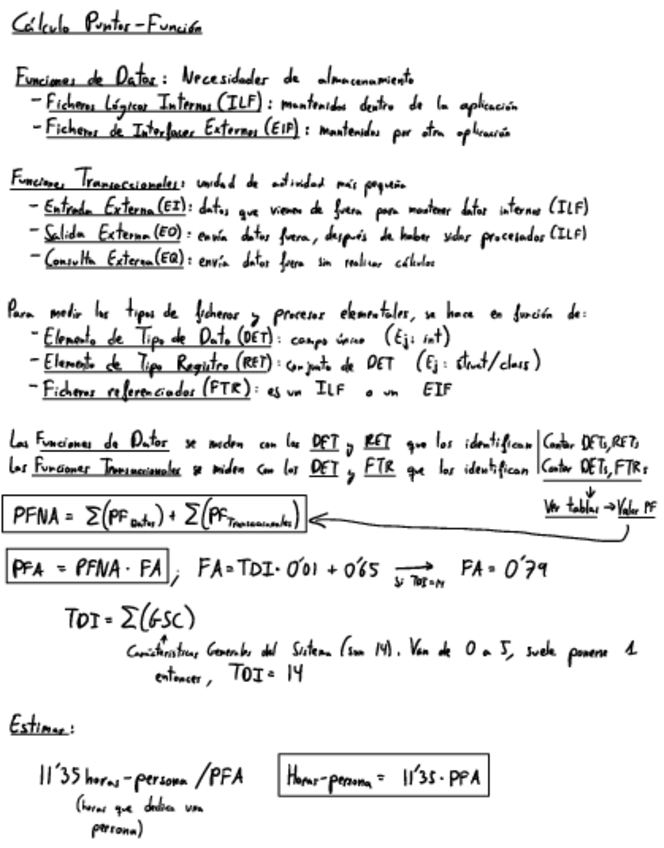 Cálculo Puntos-Función
Funciones de Datos: Necesidades de almacenamiento
- Ficheros Lógicos Internos (ILF): mantenidos dentro de la aplicación
- Ficheros de Interfaces Externos (EIF): mantenidos por otra aplicación
Funciones Transaccionales: unidad de actividad más pequeña
- Entrada Externa (EI): datos que vienen de fuera para mantener datos internos (ILF)
- Salida Externa (EO): envía datos fuera, después de haber sidos procesados (ILF)
- Consulta Externa (EQ): envía datos fuera sin realizar cálculos
Para medir los tipos de ficheros y procesos elementales, se hace en función de:
- Elemento de Tipo de Dato (DET): campo único (Ej: int)
- Elemento de Tipo Registro (RET): conjunto de DET (Ej: struct/class)
- Ficheros referenciados (FTR): es un ILF o un EIF
Las Funciones de Datos se miden con los DET y RET que los identifican | Contar DETs, RETs
Las Funciones Transaccionales se miden con los DET y FTR que los identifican | Contar DETs, FTRs
Ver tablas → Valor PF
PFNA = Σ(PF Datos) + Σ(PF Transaccionales)
PFA = PFNA · FA ; FA = TDI · 0'01 + 0'65 → Si TDI=14 FA = 0'79
TDI = Σ(GSC)
Características Generales del Sistema (son 14). Van de 0 a 5, suele ponerse 1
entonces, TDI = 14
Estimar:
11'35 horas-persona / PFA
Horas-persona = 11'35 · PFA
(horas que dedica una
persona)